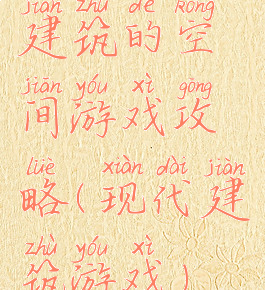 jiàn zhù de kōng
建筑的空
jiān yóu xì gōng
间游戏攻
lüè xiàn dài jiàn
略(现代建
zhù yóu xì
筑游戏)